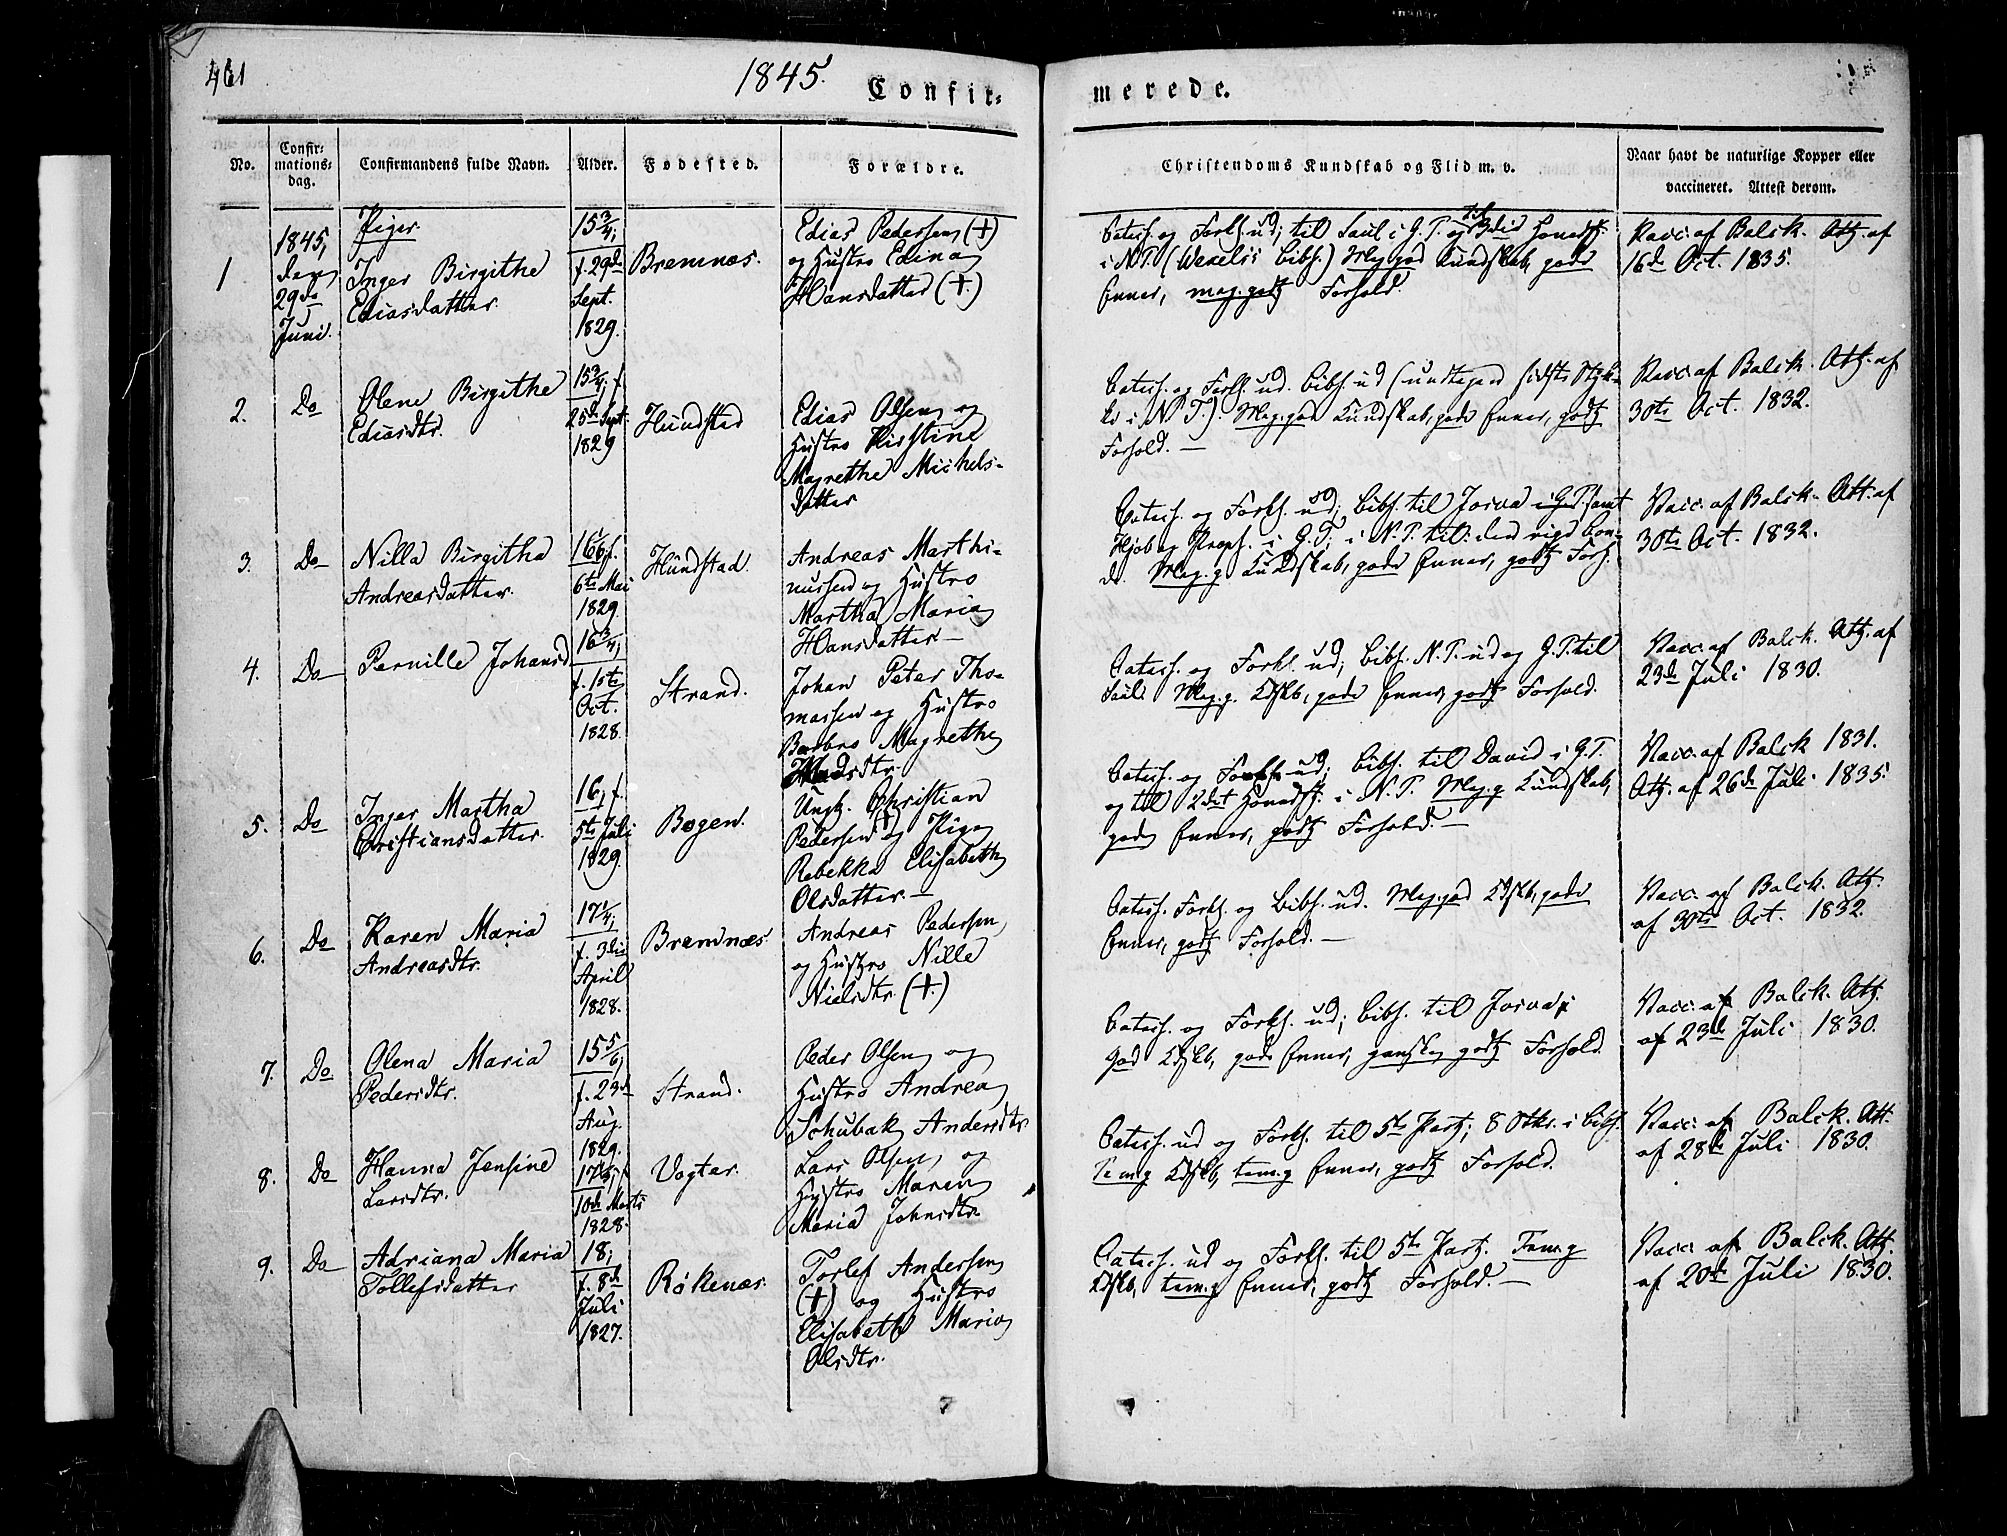 461
1845.
Confir=
merede.
No.
Confir=
mations=
dag.
Confirmandens fulde Navn.
Alder.
Fødested.
Forældre.
Christendoms Kundskab og Flid m. v.
Naar havt de naturlige Kopper eller
vaccineret. Attest derom.
Piger.
1
1845,
den
29de
Juni.
Inger Birgithe
Ediasdatter
15¾,
f. 29de
Sept.
1829.
Bremnæs.
Edias Pedersen (+)
og Hustro Edina
Hansdatter (+)
Catech. og Forkl. ud; til Saul i G. T. og til Hovedst.
i N. T. (Wexels's Bibh.) Meg. god Kundskab, gode
Evner, meg. godt Forhold.
Vacc. af Balck. Att. af
16de Oct. 1835.
2.
Do
Olene Birgithe
Ediasdtr.
15¾, f.
25de Sept.
1829
Hundstad
Edias Olsen og
Hustro Kirstine
Magrethe Michels-
datter
Catech. og Forkl. ud. Bibh. ud (undtagen sidste Styk-
ke i N. T.). Meg. god Kundskab, gode Evner, godt
Forhold. —
Vacc. af Balck. Att. af
30te Oct. 1832.
3.
Do
Nilla Birgitha
Andreasdatter.
16 1/6 f.
6te Mai
1829.
Hundstad.
Andreas Marthi-
nussen og Hustro
Martha Maria
Hansdatter —
Catech. og Forkl. ud; Bibh. til Josva i G. T. samt
Hjob og Proph. i G. T. i N. T. til: den rige Bon-
de. Meg. g. Kundskab, gode Evner, godt Forh.
Vacc. af Balck. Att. af
30te Oct. 1832.
4.
Do
Pernille Johansd.
16¾,
f. 1ste
Oct.
1828.
Strand.
Johan Peter Tho-
massen og Hustro
Barbro Magrethe
Catech. og Forkl. ud; Bibh. N. T. ud og G. T. til
Saul. Meg. g. Kdskb, gode Evner, godt Forhold.
Vacc. af Balck. Att. af
23de Juli 1830.
5.
Do
Inger Martha
Christiansdatter.
16, f.
5te Juli
1829.
Bogen.
Ungk. Christian
Pedersen (+) og Pige
Rebekka Elisabeth
Olsdatter. —
Catech. og Forkl. ud; Bibh. til David i G. T.
og til 2det Hovedst. i N. T. Meg. g. Kundskab,
gode Evner, godt Forhold. —
Vacc. af Balck 1831.
Att. af 26de Juli 1835.
6.
Do
Karen Maria
Andreasdtr.
17¼,
f. 3die
April
1828.
Bremnæs
Andreas Pedersen
og Hustro Nille
Nielsdtr. (+.)
Catech. Forkl. og Bibh. ud. Meg. god Kdskb, gode
Evner, godt Forhold. —
Vacc. af Balck. Att.
af 30te Oct. 1832.
7.
Do.
Olena Maria
Pedersdtr.
15 5/6,
f. 23de
Aug.
1829.
Strand.
Peder Olsen og
Hustro Andrea
Schubak Andersdtr
Catech. og Forkl. ud; Bibh. til Josva;
god Kdskb, gode Evner, ganske godt Forhold.
Vacc. af Balck. Att.
af 23de Juli 1830.
8.
Do
Hanna Jensine
Larsdtr.
f.
10de Marts
1828.
Vogtar.
Lars Olsen og
Hustro Maren
Maria Johnsdtr.
Catech. ud og Forkl. til 5te Part; 8 Stkr. i Bibh.
Tem. g Kdskb, tem. g Evner, godt Forhold.
Vacc. af Balck. Att.
af 28de Juli 1830.
9.
Do
Adriana Maria
Tollefsdatter
18,
f. 8de
Juli
1827.
Røkenæs.
Torlef Andersen
(+) og Hustro
Elisabeth Maria
Olsdtr.
Catech. ud og Forkl. til 5te Part. Tem. g
Kdskb, tem. g Evner, godt Forhold. —
Vacc. af Balck. Att.
af 20de Juli 1830.